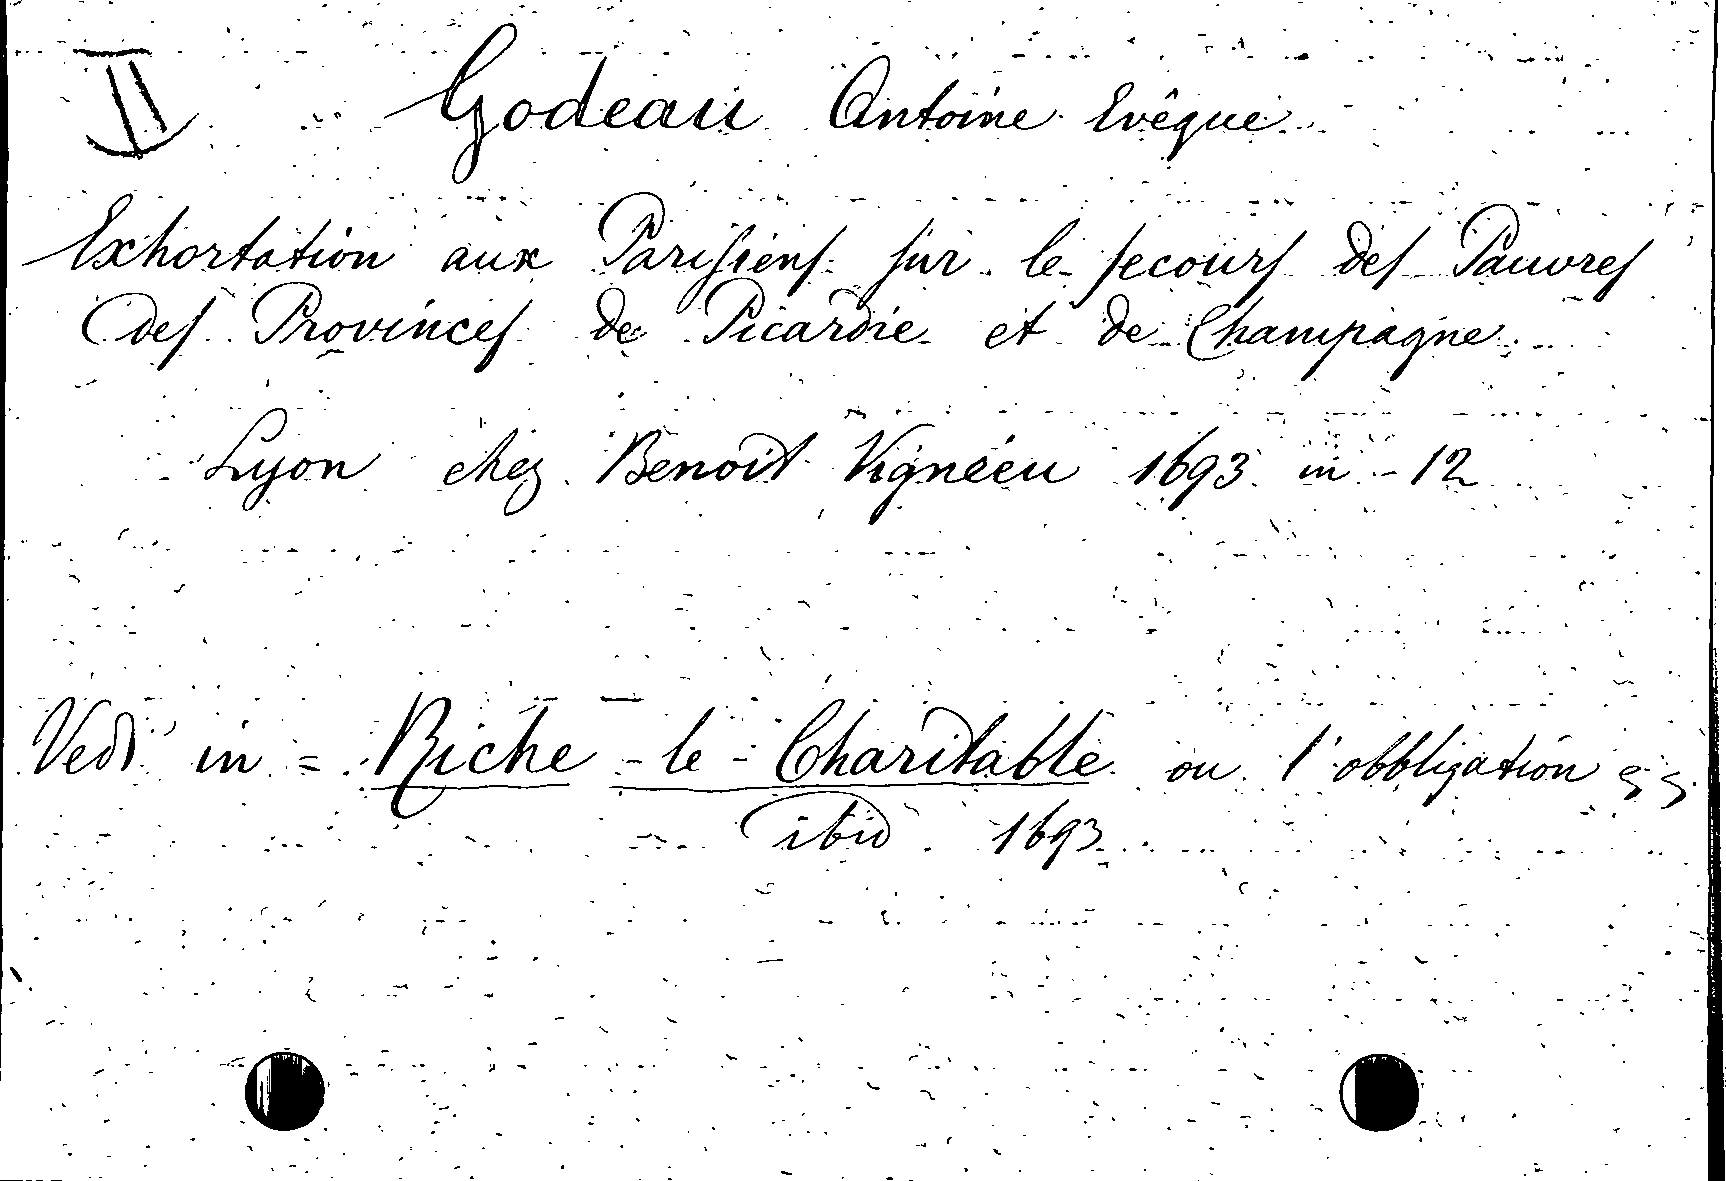 II Godeau Antoine Evêque
Exhortation aux Parisiens sur le secours des Pauvres
des Provinces de Picardie et de Champagne
Lyon chez Benoit Vignéeu 1693 in - 12
Vedi in = Riche - le - Charitable ou l'obbligation
ibid. 1693